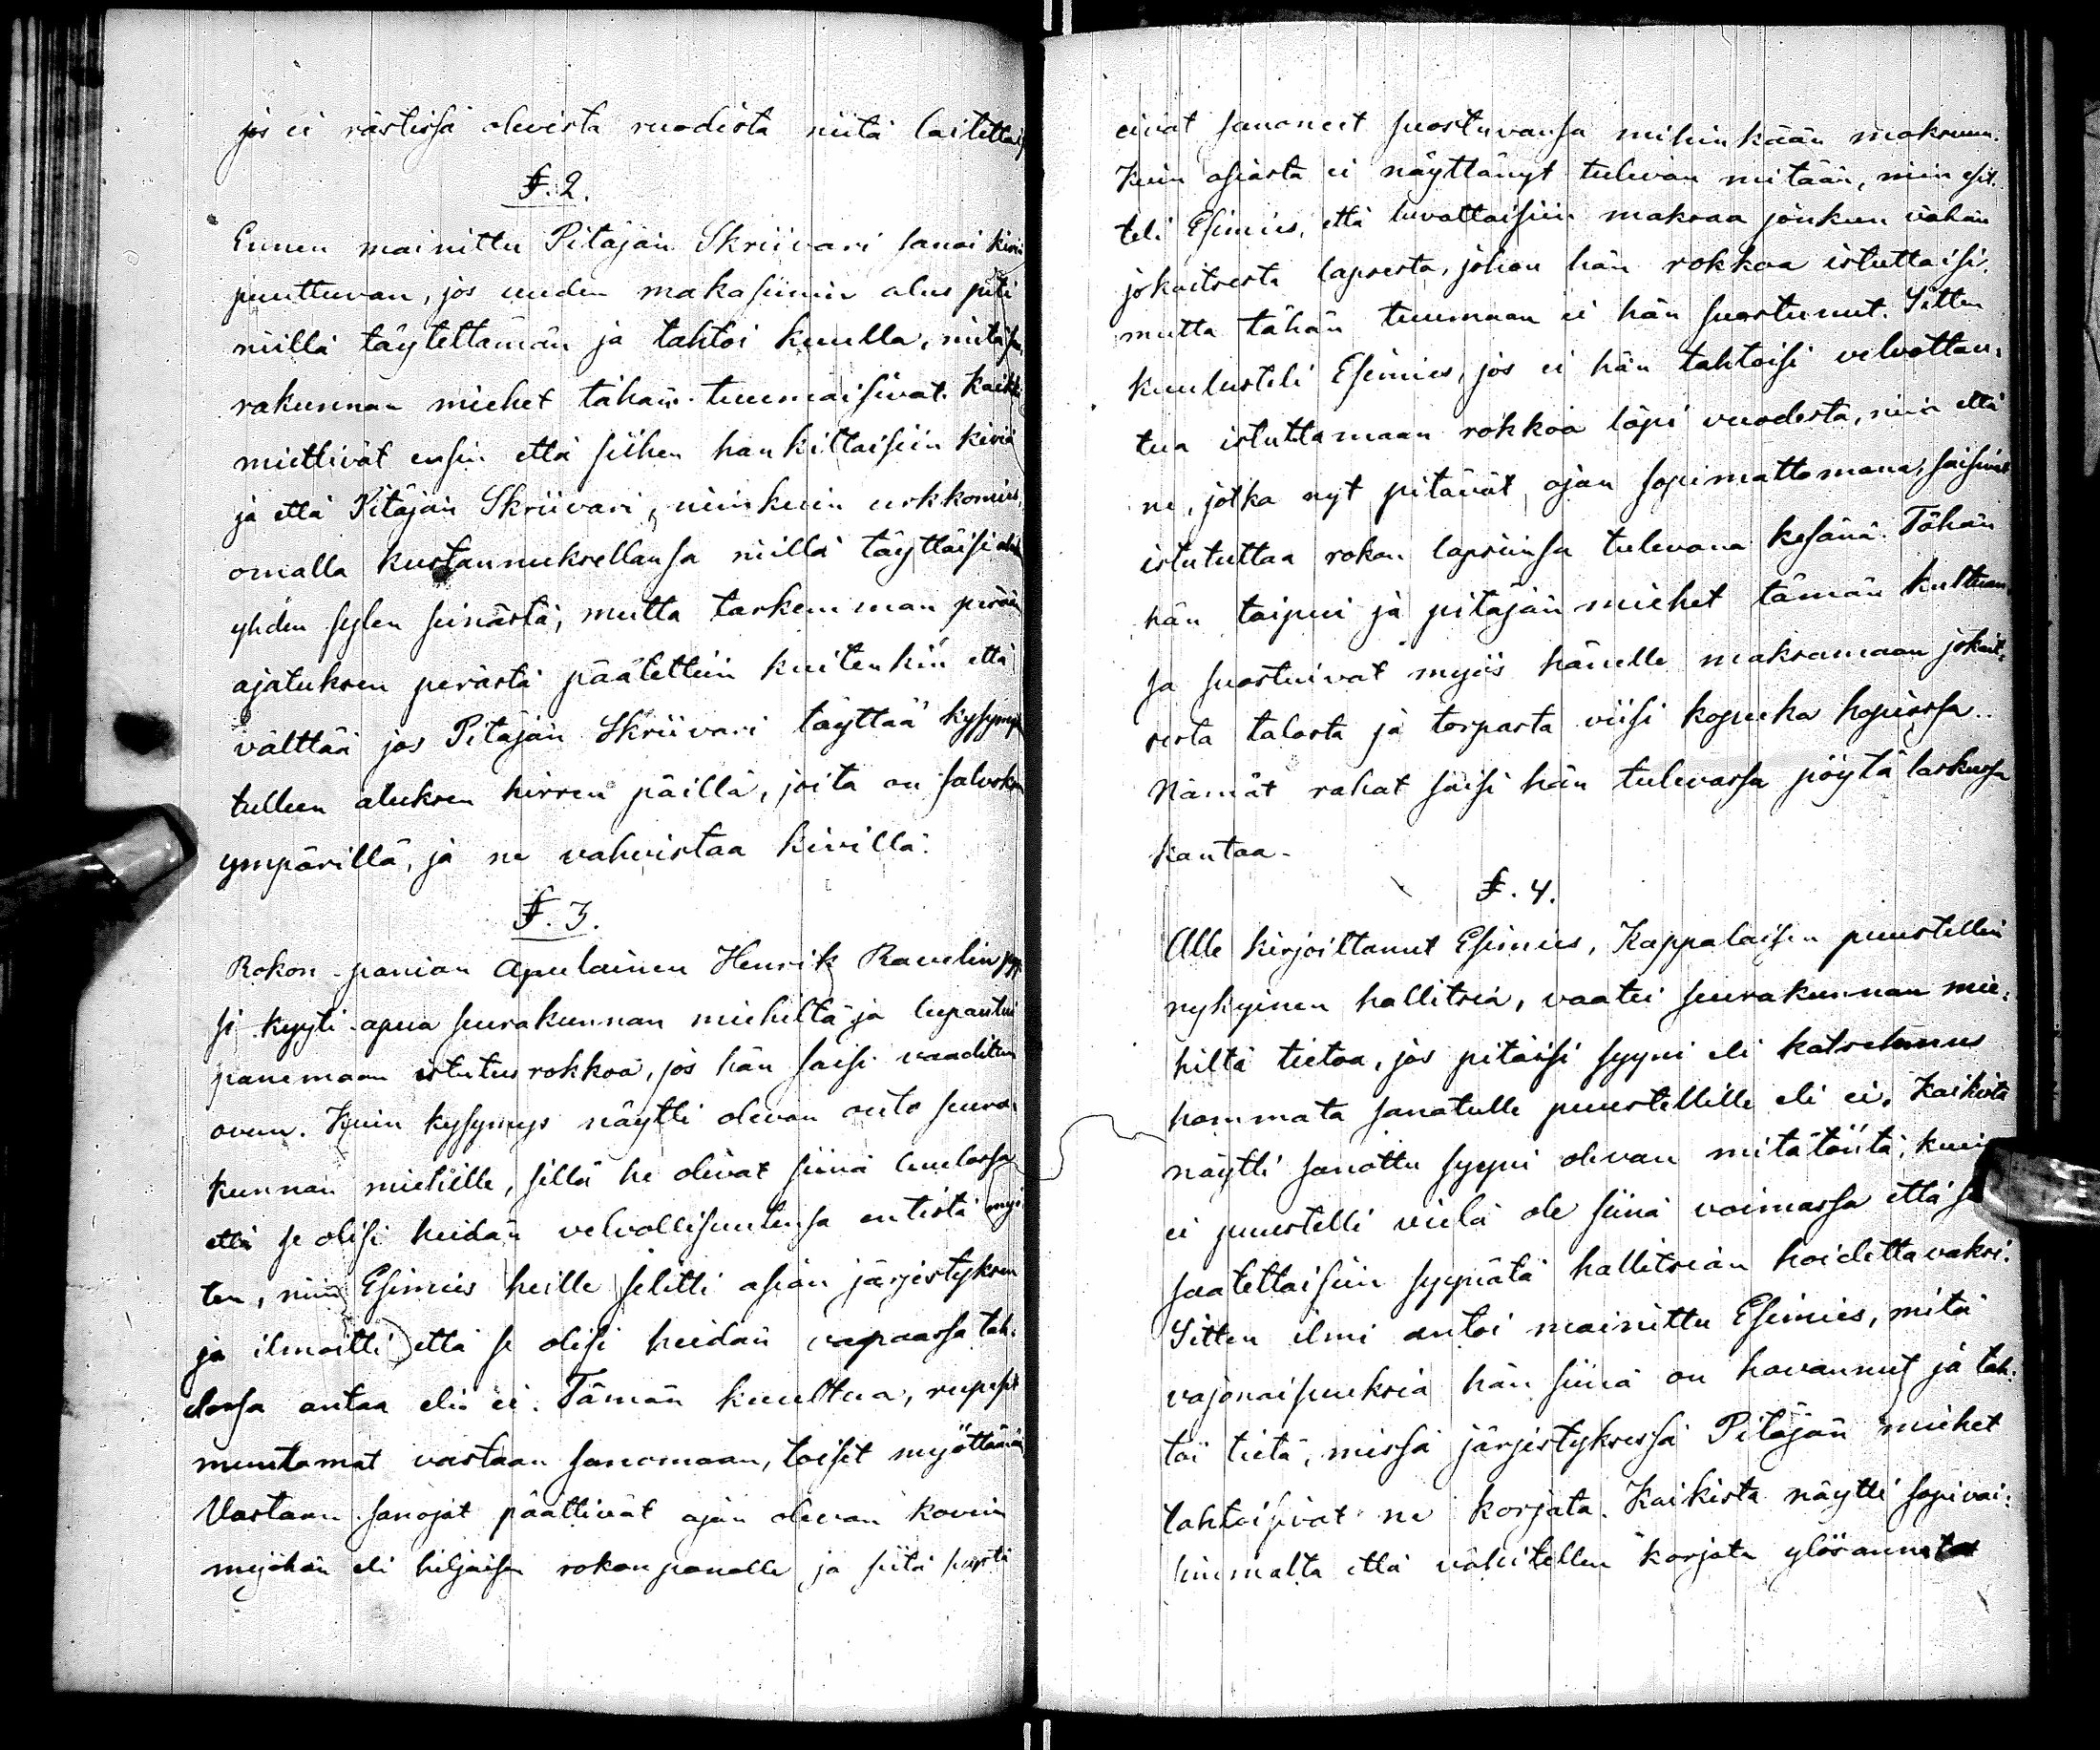 jos ei rästissä olevista ruodista niitä laitettais
§. 2.
Ennen mainittu Pitäjän Skriivari sanoi kiviä
puuttuvan, jos uuden makasiinin alus piti
niillä täytettämän ja tahtoi kuulla, mitä seu
rakunnan miehet tähän tuumaisivat. Kaikki
miettivät ensin että siihen hankittaisiin kiviä
ja että Pitäjän Skriivari, niinkuin urkkomies,
omalla kustannuksellansa niillä täyttäisi
yhden sylen seinästä; mutta tarkemman perään
ajatuksen perästä päätettiin kuitenkin että
välttää jos Pitäjän Skriivari täyttää kysymyk
tulleen aluksen hirren päillä, joita on salvoksen
ympärillä, ja ne vahvistaa kivillä.
§. 3.
Rokon-panian Apulainen Henrik Ravelin pyy
si kyyti-apua seurakunnan miehiltä ja lupautui
panemaan istutus rokkoa, jos hän saisi vaaditun
avun. Kuin kysymys näytti olevan outo seura-
kunnan miehille, sillä he olivat siinä luulossa
että se olisi heidän velvollisuutensa entistä myö
ten, niin Esimies heille selitti asian järjestyksen
ja ilmoitti että se olisi heidän vapaassa tah-
dossa antaa eli ei. Tämän kuultua, rupesit
muutamat vastaan sanomaan, toiset myöttämään
Vastaan sanojat päättivät ajan olevan kovin
myöhän eli hiljaisen rokon panolle ja siitä syystä
eivät sanoneet suostuvansa mihinkään maksuun.
Kuin asiasta ei näyttänyt tulevan mitään, niin esit-
teli Esimies, että luvattaisiin maksaa jonkun vähän
jokaitsesta lapsesta, johon hän rokkoa istuttaisi;
mutta tähän tuumaan ei hän suostunut. Sitten
kuulusteli Esimies, jos ei hän tahtoisi velvottau-
tua istuttamaan rokkoa läpi vuodesta, niin että
ne, jotka nyt pitävät ajan sopimattomana, saisivat
istututtaa rokon lapsiinsa tulevana kesänä. Tähän
hän taipui ja pitäjän miehet tämän kultuan
sa suostuivat myös hänelle maksamaan jokait-
sesta talosta ja torpasta viisi kopeeka hopiassa.
Nämät rahat saisi hän tulevassa pöytä laskussa
kantaa.
§. 4.
Alle kirjoittanut Esimies, Kappalaisen puustellin
nykyinen hallitsia, vaatei seurakunnan mie-
hiltä tietoa, jos pitäisi syyni eli katselmus
hommata sanatulle puustellille eli ei. Kaikista
näytti sanottu syyni olevan mitätöntä, kuin
ei puustelli vielä ole siinä voimassa että se
saatettaisiin syynätä hallitsian hoidettavaksi.
Sitten ilmi antoi mainittu Esimies, mitä
vajonaisuuksia hän siinä on havannut ja tah-
toi tietä, missä järjestyksessä Pitäjän miehet
tahtoisivat ne korjata. Kaikista näytti sopivai-
simmalta että vähitellen korjata ylösannetut